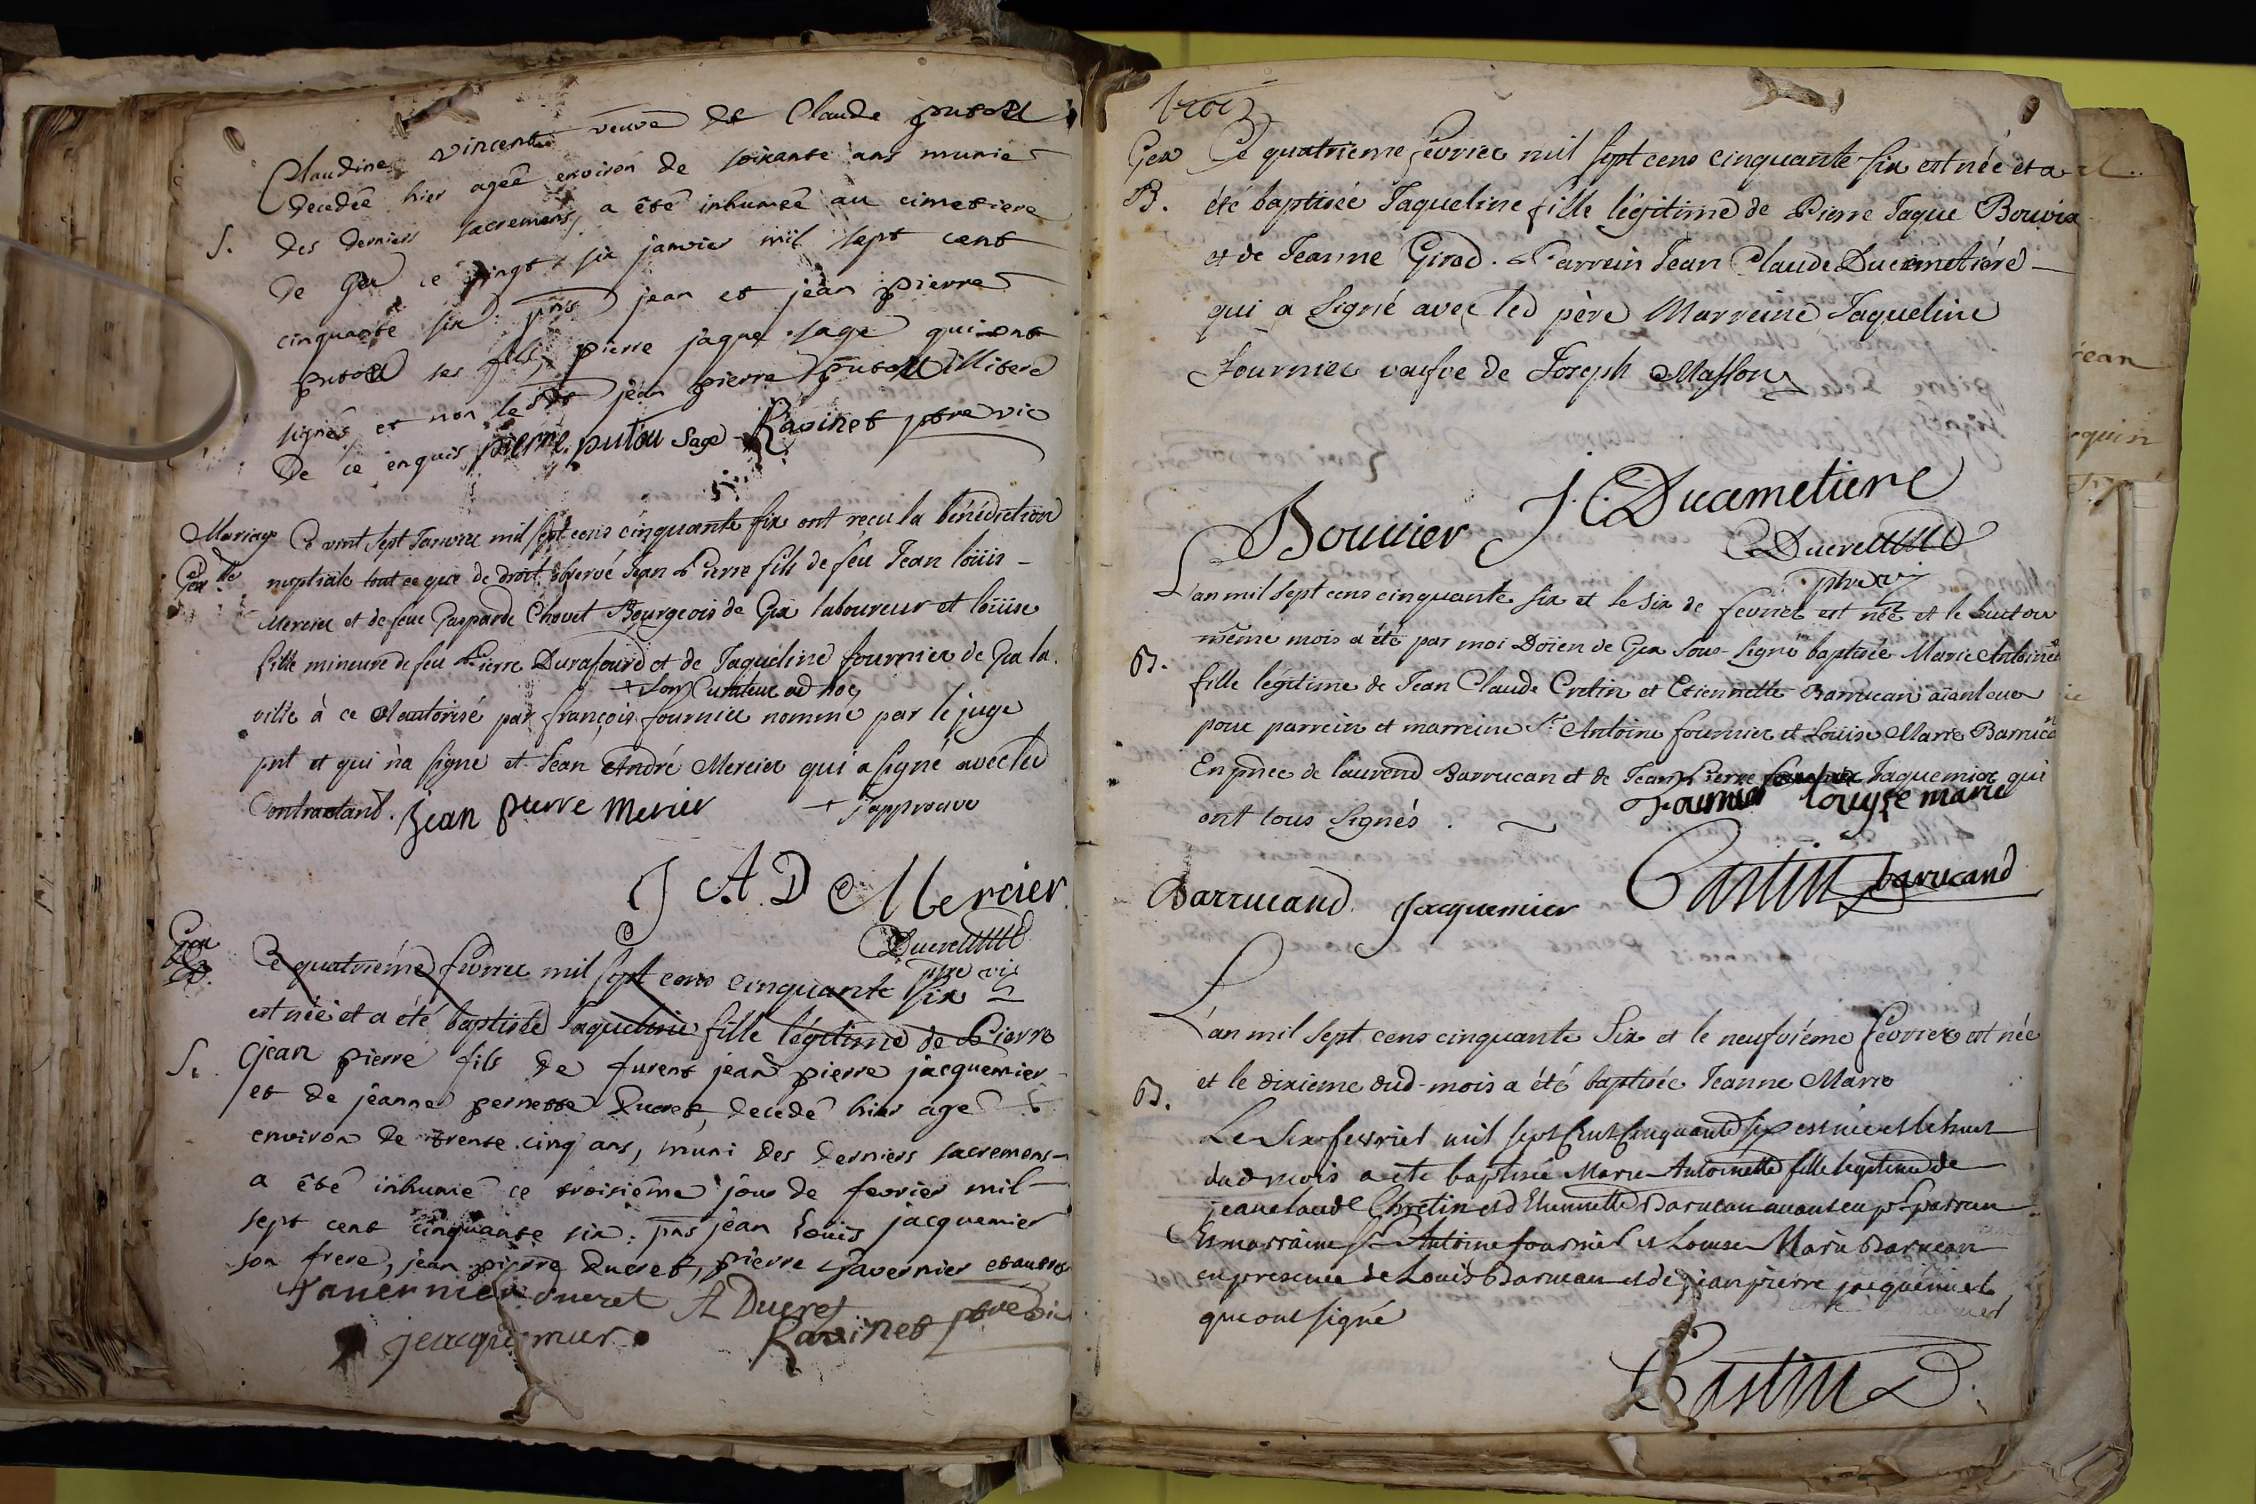 Claudine vincent veuve de Claude putod
decedée hier agée environ de soixante ans munie
S. des derniers sacremens, a été inhumée au cimetiere
de Gex ce vingt six janvier mil sept cent
cinquante six : pns jean et jean pierre
putod ses fils, pierre jaque sage qui ont
signés et non led jean pierre putod illiteré
De ce enquis pierre putou Sage Ravinet ptre vic
Mariage Ce vint sept Janvier mil sept cens cinquante six ont reçu la bénédiction
Gex nuptiale tout ce que de droit observé Jean Pierre fils de feu Jean loüis
Mercier et de feue Gasparde Chovet Bourgeois de Gex laboureur et loüise
fille mineure de feu Pierre Durafourd et de Jaqueline fournier de Gex la
+ son Curateur ad hoc
ville à ce autorisé par françois fournier nommé par le juge
pnt et qui n'a signé et Jean André Mercier qui a signé avec led
Contractant. Jean pierre merier + japprouve
J A. D Mercier
Ducret
ptre vic
Gex
B. Ce quatriéme fevrier mil sept cens cinquante six
est née et a été baptisée Jaqueline fille légitime de Pierre
S. jean pierre fils de furent jean pierre jacquemier
et de jeanne pernette Ducret, decedé hier agé
environ de trente cinq ans, muni des derniers sacremens
a été inhumé ce troisième jour de fevrier mil
sept cent cinquante six : pns jean Louis jacquemier
son frere, jean pierre Ducret, pierre tavernier et autres
Tavernier ducret A Ducret
jeacquemier Ravinet ptre vic
trois
Gex Ce quatrieme fevrier mil sept cens cinquante six est née et a
B. été baptisée Jaqueline fille légitime de Pierre Jaque Bouvier
et de Jeanne Girod. Parrein Jean Claude Ducimetiére
qui a signé avec led père Marreine Jaqueline
Fournier vaefve de Joseph Masson
Bouvier J. C Ducimetiere
Ducret
ptre vic
L'an mil sept cens cinquante six et le six de fevrier est née et le huit du
même mois a été par moi Doïen de Gex sous-signé baptisée Marie Antoinette
B. fille legitime de Jean Claude Cretin et Etiennette Barrucan aiant eu
pour parrein et marreine Sr Antoine fournier et Loüise Marie Barrucan
En pnce de laurend Barrucan et de Jean Pierre Jaquemier qui
ont tous signés. Fournier louyse marie
Barrucand Jacquemier Castin barucand
L'an mil sept cens cinquante Six et le neufviéme fevrier est née
B. et le dixieme dud mois a été baptisée Jeanne Marie
Le Six fevrier mil sept Cent Cinquante six est née et le huit
dud mois a ete baptisée Marie Antoinette fille legitime de
jean claude Chretin et d'Etiennette Barucan ayant eu pr parrain
Et marraine Sr Antoine fournier et Louise Marie Barucan
en presence de Louis Barucan et de jean pierre jacquemier
qui ont signé
Castin